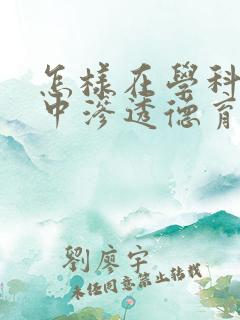 怎樣在學科
中滲透德育
劉廖宇
未经同意禁止转载